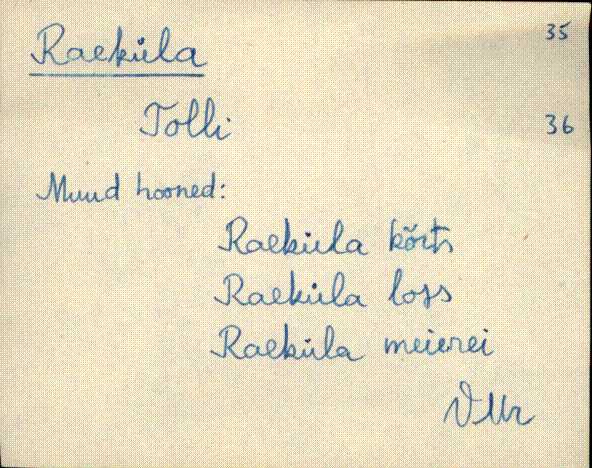 Raeküla 35
Tolli 36
Muud hooned:
Raeküla kõrts
Raeküla loss
Raeküla meierei
VMr